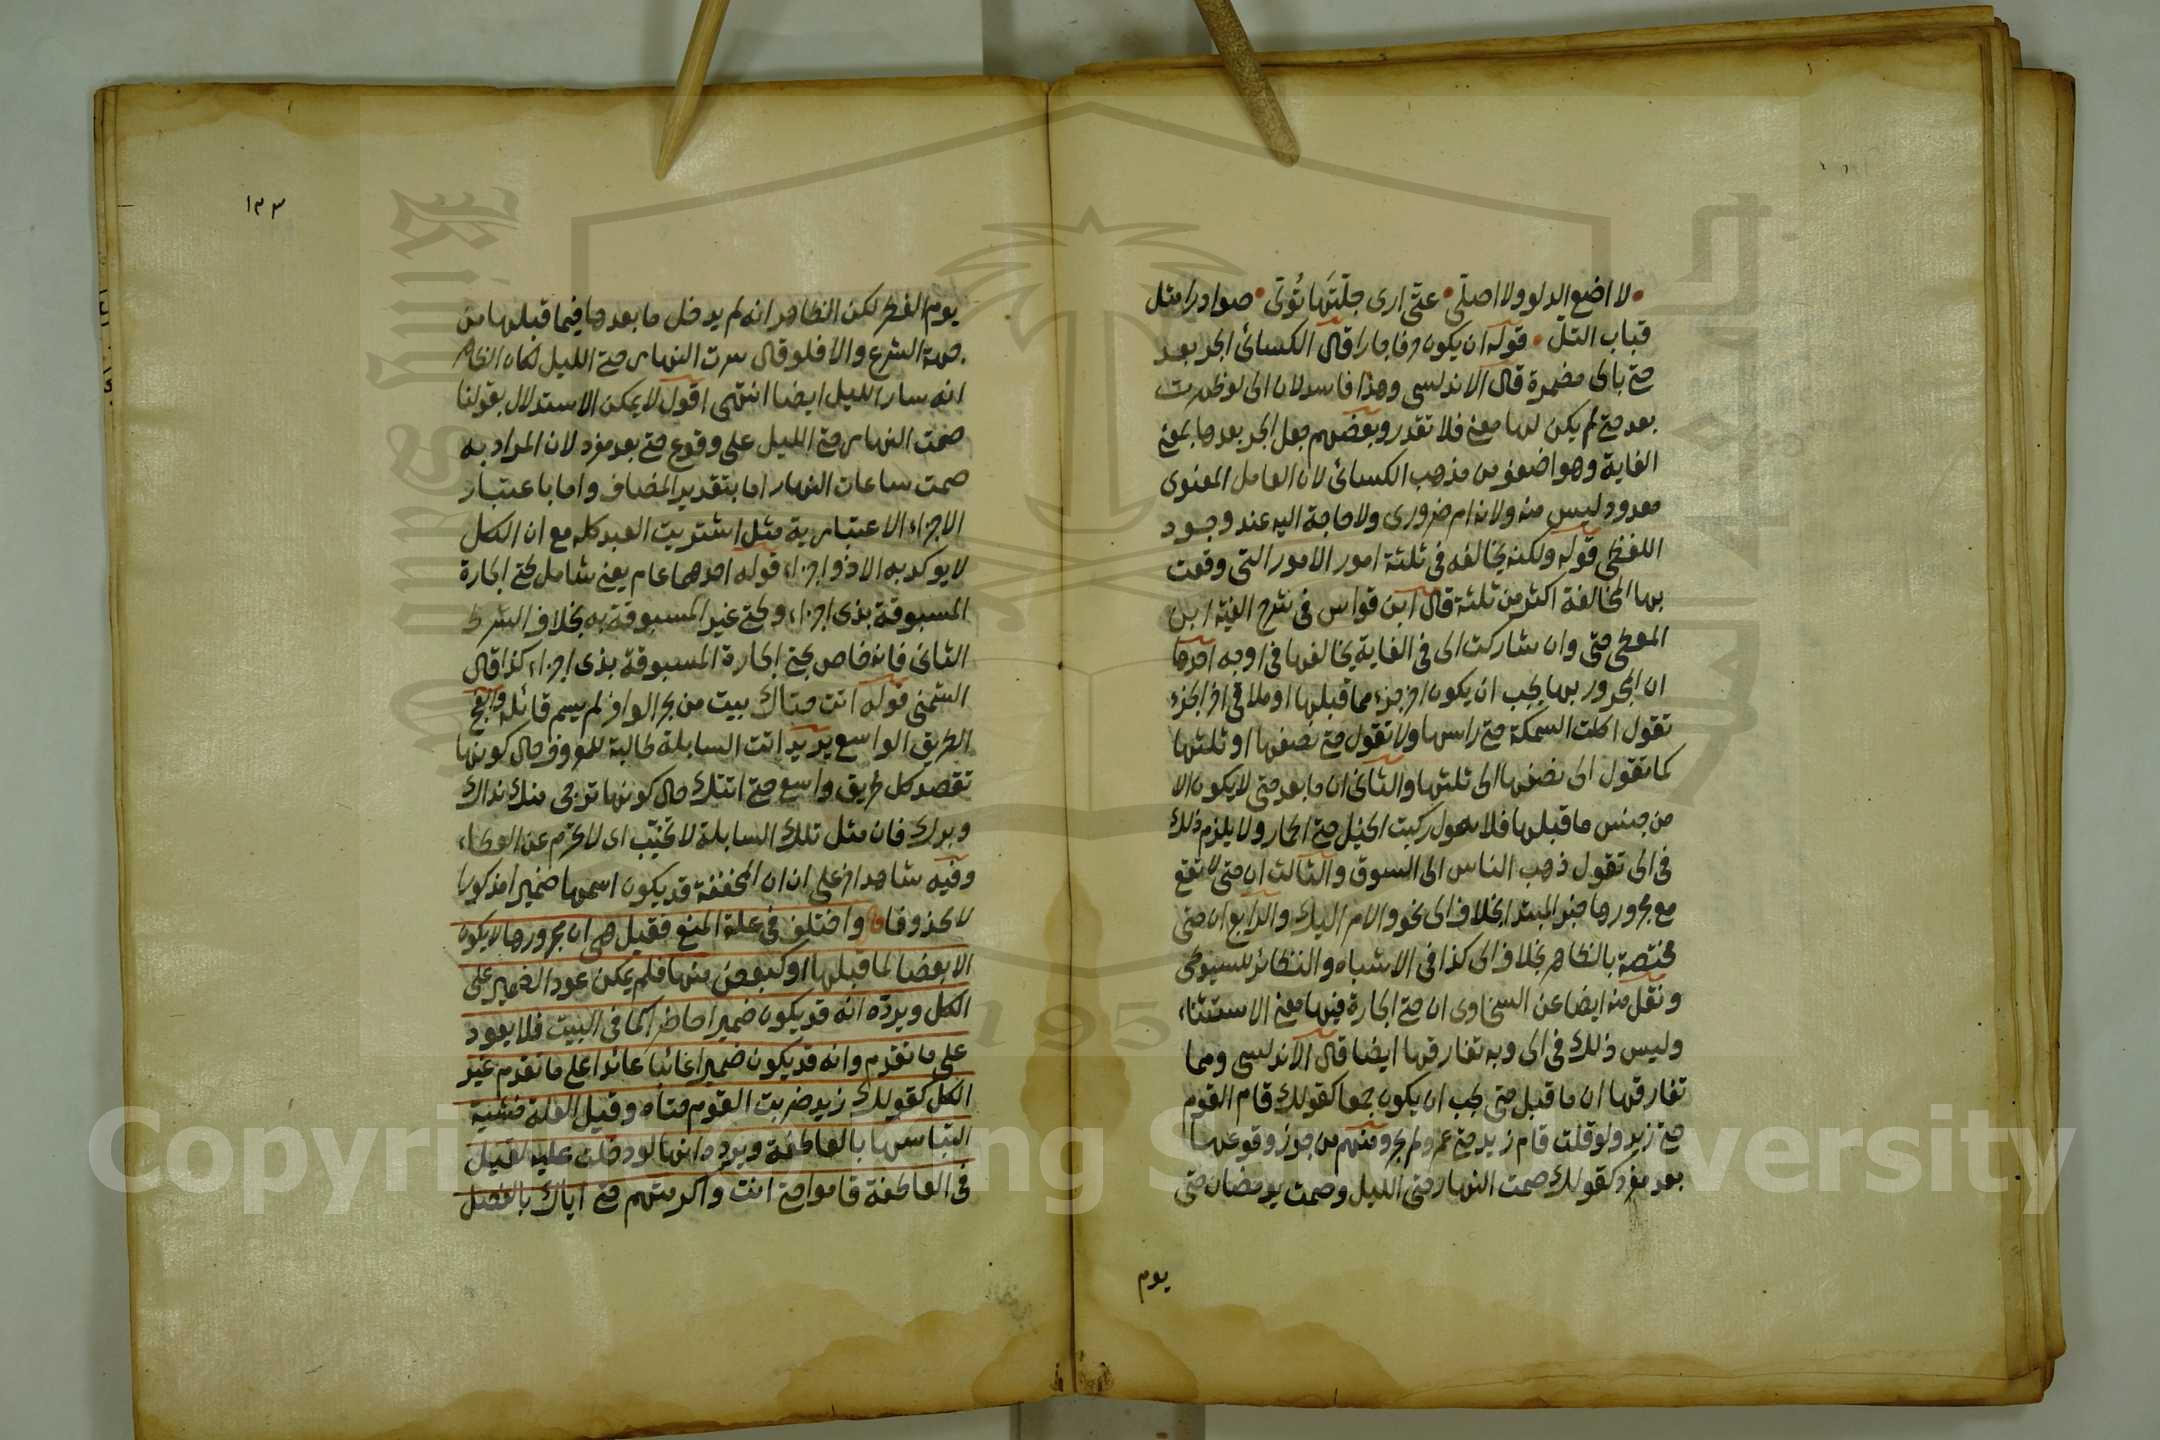 لا اضع الدلو ولا اصلى عتى ارى جلتها تولى صوادرا مثل
قباب التل قوله ان يكون حرفا جارا قال الكسائى الجر بعد
حتى بالى مضمرة قال الاندلسى وهذا فاسد لان الى لو ظهرت
بعد حتى لم يكن لها معنى فلا تقدر وبعضهم جعل الجر بعدها بمعنى
الغاية وهو اضعف من مذهب الكسائى لان العامل المعنوى
معدود ليس منه ولانه امر ضرورى ولا حاجة اليه عند وجود
اللفظى قوله ولكنه يخالفه فى ثلثة امور الامور التى وقعت
بها المخالفة اكثر من ثلثة قال ابن قواس فى شرح الفية ابن
المعطى حتى وان شاركت الى فى الغاية يخالفها فى اوجه احدها
ان المجرور بها يجب ان يكون اخر جزء مما قبلها او ملاقى اخر الجزء
تقول اكلت السمكة حتى راسها ولا تقول حتى نصفها او ثلثها
كما تقول الى نصفها الى ثلثها والثانى ان ما بعد حتى لا يكون الا
من جنس ما قبلها فلا تقول ركبت الخيل حتى الحمار ولا يلزم ذلك
فى الى تقول ذهب الناس الى السوق والثالث ان حتى لا تقع
مع مجرورها خبر المبتدا بخلاف الى نحو والامر اليك والرابع ان حتى
مختصة بالظاهر بخلاف الى كذا فى الاشباه والنظائر للسيوطى
ونقل منه ايضا عن السخاوى ان حتى الجارة فيها معنى الاستثناء
وليس ذلك فى الى وبه تفارقها ايضا قال الاندلسى ومما
تفارقها ان ما قبل حتى يجب ان يكون جمعا كقولك قام القوم
حتى زيد ولو قلت قام زيد حتى عمرو لم يجز ومنهم من جوز وقوعها
بعد مفرد كقولك صمت النهار حتى الليل وصمت رمضان حتى
يوم
١٣٣
يوم الفطر لكن الظاهر انه لم يدخل ما بعدها فيما قبلها من
جهة الشرع والا فلو قال سرت النهار حتى الليل لكان الظاهر
انه سار الليل ايضا انتهى اقول لا يمكن الاستدلال بقولنا
صمت النهار حتى الليل على وقوع حتى بعد مفرد لان المراد به
صمت ساعات النهار اما بتقدير المضاف واما باعتبار
الاجزاء الاعتبارية مثل اشتريت العبد كله مع ان الكل
لا يوكد به الا ذو اجزاء قوله احدهما عام يعنى شامل لحتى الجارة
المسبوقة بذى اجزاء ولحتى غير المسبوقة به بخلاف الشرط
الثانى فانه خاص بحتى الجارة المسبوقة بذى اجزاء كذا قال
الشمنى قوله اتت حتاك بيت من بحر الوافر لم يسم قائله والفج
الطريق الواسع يريد اتت السابلة طالبة للمعروف حال كونها
تقصد كل طريق واسع حتى اتتك حال كونها ترجى منك نداك
وبرك فان مثل تلك السابلة لا تخيب اى لا تحرم عن العطاء
وفيه شاهد اخر على ان ان المخففة قد يكون اسمها ضميرا مذكورا
لا محذوفا قال واختلف فى علة المنع فقيل هى ان مجرورها لا يكون
الا بعضا لما قبلها او كبعض منها فلم يمكن عود الضمير على
الكل ويرده انه قد يكون ضميرا حاضرا كما فى البيت فلا يعود
على ما تقدم وانه قد يكون ضميرا غائبا عائدا على ما تقدم غير
الكل كقولك زيد ضربت القوم حتاه وقيل العلة خشية
التباسها بالعاطفة ويرده انها لو دخلت عليه لقيل
فى العاطفة قاموا حتى انت واكرمتهم حتى اياك بالفصل